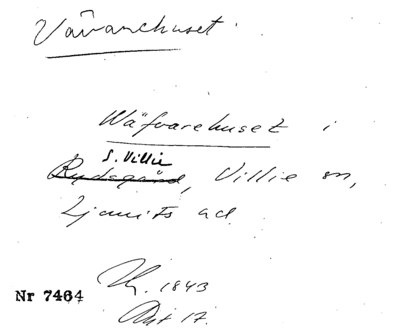 Vävarehuset.
Wäfvarehuset i
S. Villie
Rydsgård, Villie sn,
Ljunits hd
1843
Nr 7464
Akt 17.